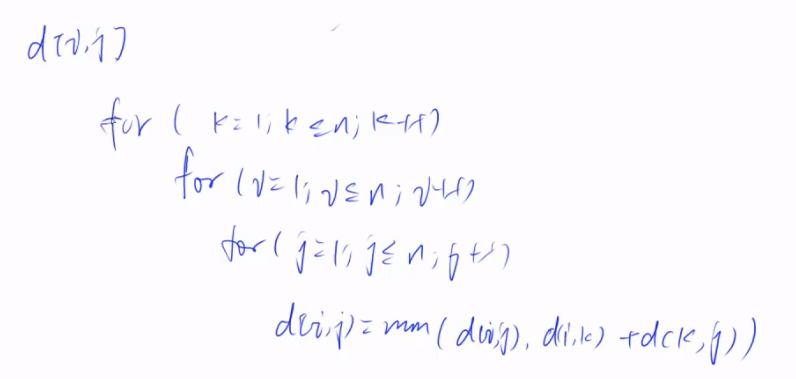 d[i,j]
for ( k=1; k≤n; k++)
for (i=1; i≤n; i++)
for( j=1; j≤n; j++)
d(i,j)=min( d(i,j), d(i,k) +d(k,j))